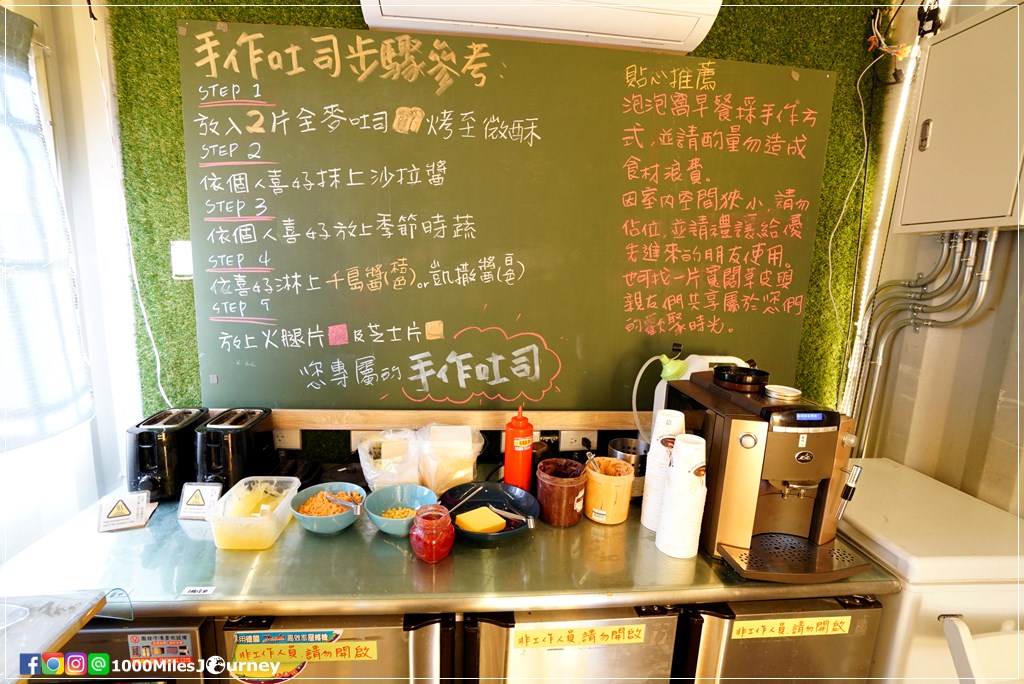 手作吐司步驟參考:
STEP 1
放入2片全麥吐司 烤至微酥
STEP 2
依個人喜好抹上沙拉醬
STEP 3
依個人喜好放上季節時蔬
STEP 4
依喜好淋上千島醬(橘色)or凱撒醬(白色)
STEP 5
放上火腿片 及芝士片
您專屬的 手作吐司
貼心推薦
泡泡窩早餐採手作方
式,並請酌量勿造成
食材浪費。
因室內空間狹小,請勿
佔位,並請禮讓給優
先進來的朋友使用。
也可找一片寬闊草皮與
親友們共享屬於您們
的歡聚時光。
非工作人員,請勿開啟
非工作人員,請勿開啟
非工作人員,請勿開啟
1000MilesJourney